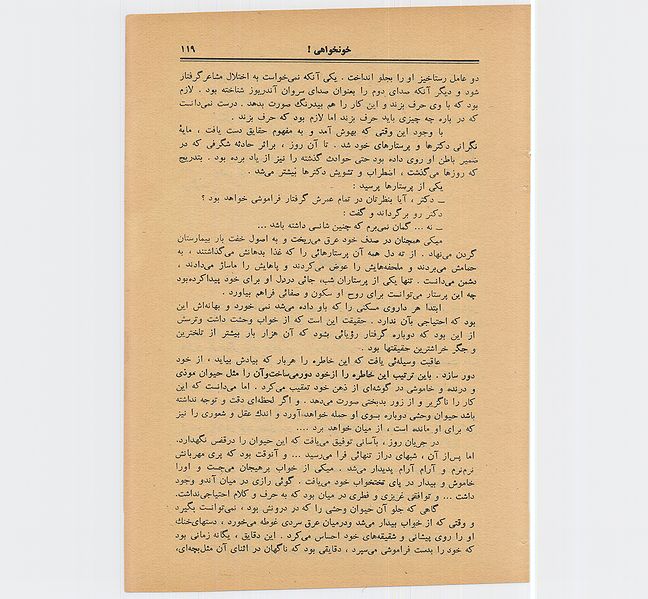 خونخواهی ! ۱۱۹
دو عامل رستاخیز او را بجلو انداخت . یکی آنکه نمی‌خواست به اختلال مشاعر گرفتار
شود و دیگر آنکه صدای دوم را بعنوان صدای سروان آندریوز شناخته بود . لازم
بود که با وی حرف بزند و این کار را هم بیدرنگ صورت بدهد . درست نمی‌دانست
که در باره چه چیزی باید حرف بزند اما لازم بود که حرف بزند .
با وجود این وقتی که بهوش آمد و به مفهوم حقایق دست یافت ، مایهٔ
نگرانی دکترها و پرستارهای خود شد . تا آن روز ، براثر حادثه شگرفی که در
ضمیر باطن او روی داده بود حتی حوادث گذشته را نیز از یاد برده بود . بتدریج
که روزها می‌گذشت ، اضطراب و تشویش دکترها بیشتر می‌شد .
یکی از پرستارها پرسید :
ــ دکتر ، آیا بنظرتان در تمام عمرش گرفتار فراموشی خواهد بود ؟
دکتر رو برگرداند و گفت :
ــ نه ... گمان نمی‌برم که چنین شانسی داشته باشد ...
میکی همچنان در صدف خود عرق می‌ریخت و به اصول خفت بار بیمارستان
گردن می‌نهاد . از ته دل همه آن پرستارهائی را که غذا بدهانش می‌گذاشتند ، به
حمامش می‌بردند و ملحفه‌هایش را عوض می‌کردند و پاهایش را ماساژ می‌دادند ،
دشمن می‌دانست . تنها یکی از پرستاران شب، جائی دردل او برای خود پیدا کرده‌بود
چه این پرستار می‌توانست برای روح او سکون و صفائی فراهم بیاورد .
ابتدا هر داروی مسکنی را که باو داده می‌شد نمی خورد و بهانه‌اش این
بود که احتیاجی بآن ندارد . حقیقت این است که از خواب وحشت داشت وترسش
از این بود که دوباره گرفتار رؤیائی بشود که آن هزار بار بیشتر از تلخترین
و جگر خراشترین حقیقتها بود .
عاقبت وسیله‌ئی یافت که این خاطره را هربار که بیادش بیاید ، از خود
دور سازد . باین ترتیب این خاطره را ازخود دورمی‌ساخت‌وآن را مثل حیوان موذی
و درنده و خاموشی در گوشه‌ای از ذهن خود تعقیب می‌کرد . اما می‌دانست که این
کار را ناگزیر و از زور بدبختی صورت می‌دهد . و اگر لحظه‌ای دقت و توجه نداشته
باشد حیوان وحشی دوباره بسوی او حمله خواهد آورد و اندك عقل و شعوری را نیز
که برای او مانده است ، از میان خواهد برد ....
در جریان روز ، بآسانی توفیق می‌یافت که این حیوان را درقفس نگهدارد.
اما پس‌از آن ، شبهای دراز تنهائی فرا می‌رسید ... و آنوقت بود که پری مهربانش
نرم‌نرم و آرام آرام پدیدار می‌شد . میکی از خواب برهیجان می‌جست و اورا
خاموش و بیدار در پای تختخواب خود می‌یافت . گوئی رازی در میان آندو وجود
داشت ... و توافقی غریزی و فطری در میان بود که به حرف و کلام احتیاجی‌نداشت.
گاهی که جلو آن حیوان وحشی را که در درونش بود ، نمی‌توانست بگیرد
و وقتی که از خواب بیدار می‌شد ودرمیان عرق سردی غوطه می‌خورد ، دستهای‌خنك
او را روی پیشانی و شقیقه‌های خود احساس می‌کرد . این دقایق ، یگانه زمانی بود
که خود را بدست فراموشی می‌سپرد ، دقایقی بود که ناگهان در اثنای آن مثل‌بچه‌ای،